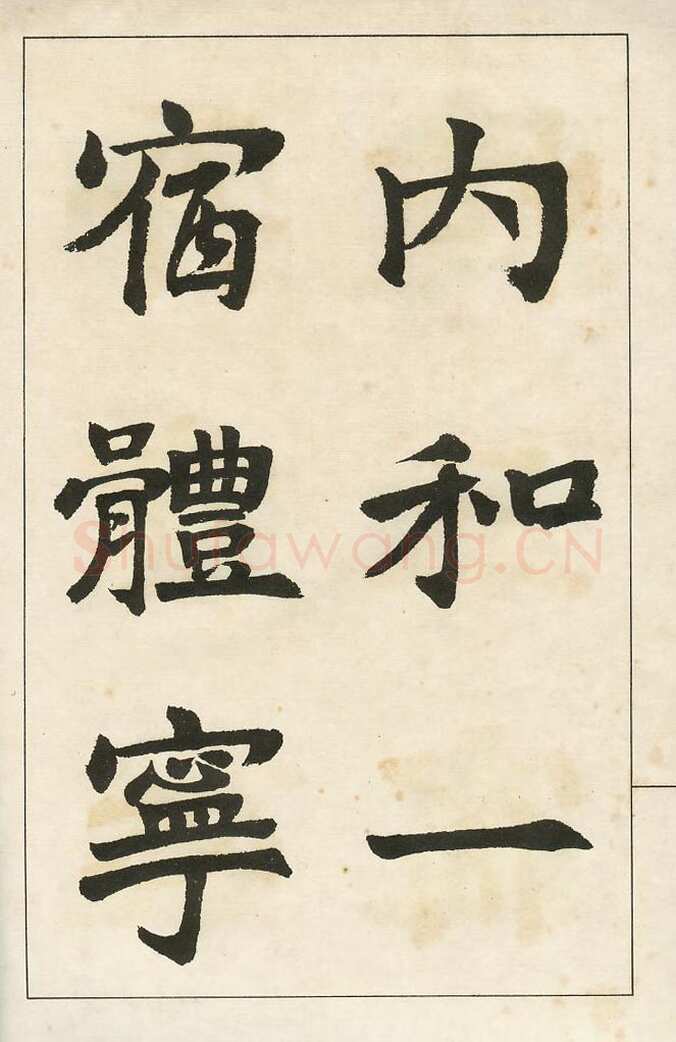 内和一
宿體寧
Shufawang.CN